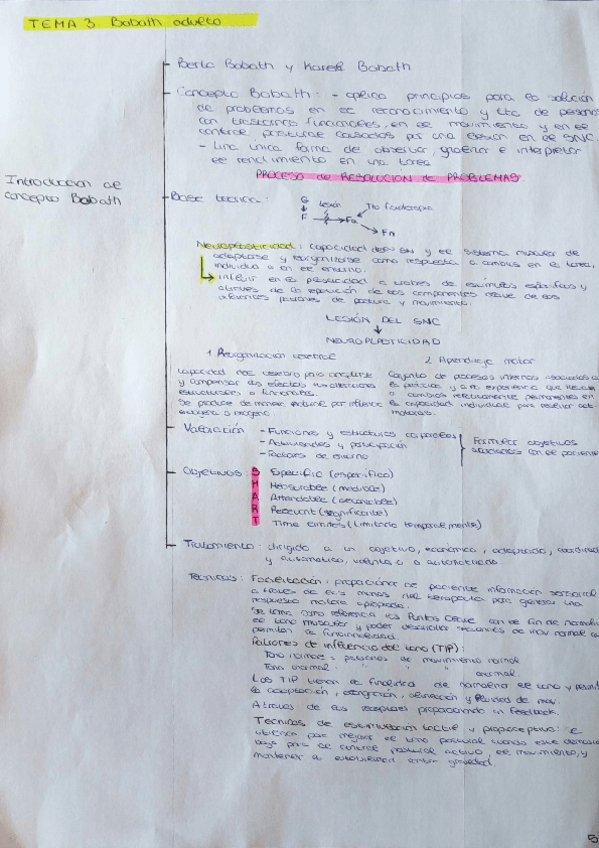 TEMA 3. Bobath adulto
Berta Bobath y Karel Bobath
Concepto Bobath: - aplica principios para la solución
de problemas en el reconocimiento y tto de personas
con trastornos funcionales, en el movimiento y en el
control postural causados por una lesión en el SNC.
- Una única forma de observar, analizar e interpretar
el rendimiento en una tarea
PROCESO de RESOLUCION de PROBLEMAS
Introducción al
concepto Bobath
Base teórica:
G Lesión Tto fisioterapia
F Fa
Fn
Neuroplasticidad: capacidad del SN y el sistema muscular de
adaptarse y reorganizarse como respuesta a cambios en la tarea,
individuo o en el entorno.
influir en la plasticidad a través de estímulos específicos y
a través de la reparación de los componentes clave de los
diferentes patrones de postura y movimiento.
LESIÓN DEL SNC
NEUROPLASTICIDAD
1. Reorganización cerebral
2. Aprendizaje motor
Capacidad del cerebro para adaptarse
y compensar los efectos tras alteraciones
estructurales o funcionales.
Se produce de manera por influencia
endógena o exógena
Conjunto de procesos internos asociados a
la práctica y a la experiencia que llevan
a cambios relativamente permanentes en
la capacidad individual para resolver act.
motoras.
Valoración - Funciones y estructuras corporales
- Actividades y participación
- Factores de entorno
Formular objetivos
asociados con el paciente
Objetivos S Specific (específico)
M Measurable (medible)
A Attendable (alcanzable)
R Relevant (significante)
T Time limites (Limitario temporalmente)
Tratamiento: dirigido a un objetivo, económico, adaptado, coordinado
y automático, voluntario o automático.
Técnicas: Facilitación: proporcionar al paciente información sensorial
a través de las manos del terapeuta para generar una
respuesta motora apropiada.
Se toma como referencia los Puntos Clave con el fin de normalizar
el tono muscular y poder desarrollar secuencias de mov normal que
permitan la funcionalidad.
Patrones de influencia del tono (TIP):
Tono normal: patrones de movimiento normal
Tono anormal: " " anormal
Los TIP tienen la finalidad de normalizar el tono y permitir
la adaptación, elongación, alineación y fluidez de mov.
A través de los receptores propocionando un feedback.
Técnicas de estimulación táctil y propioceptivo: se
utilizan para mejorar el tono postural cuando este demasiado
bajo para el control postural activo, el movimiento, y
mantener la estabilidad contra gravedad.
5